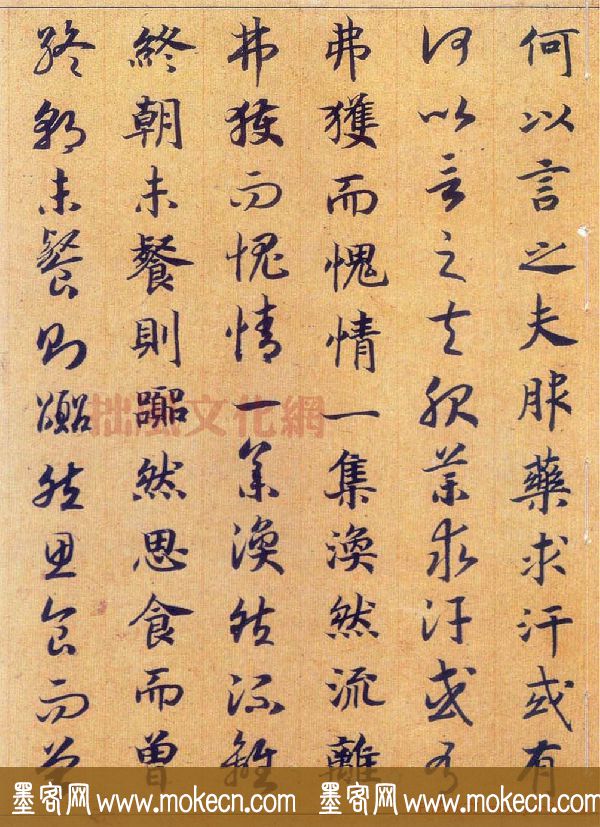 何以言之夫服藥求汗或有
何以言之夫服藥求汗或有
弗獲而愧情一集渙然流離
弗獲而愧情一集渙然流離
終朝未餐則囂然思食而曾
終朝未餐則囂然思食而曾
拙風文化網
墨客网 www.mokecn.com 墨客网 www.mokecn.com